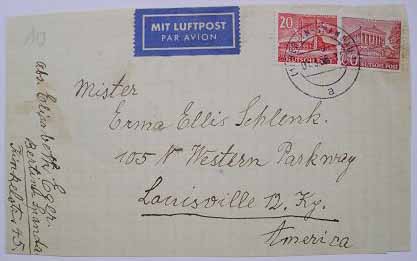 MIT LUFTPOST
PAR AVION
20
DEUTSCHE POST
a
Mister
Erma Ellis Schlenk.
105 N Western Parkway
Louisville 12. Ky.
America
abs. Elisabeth Eger.
Berlin